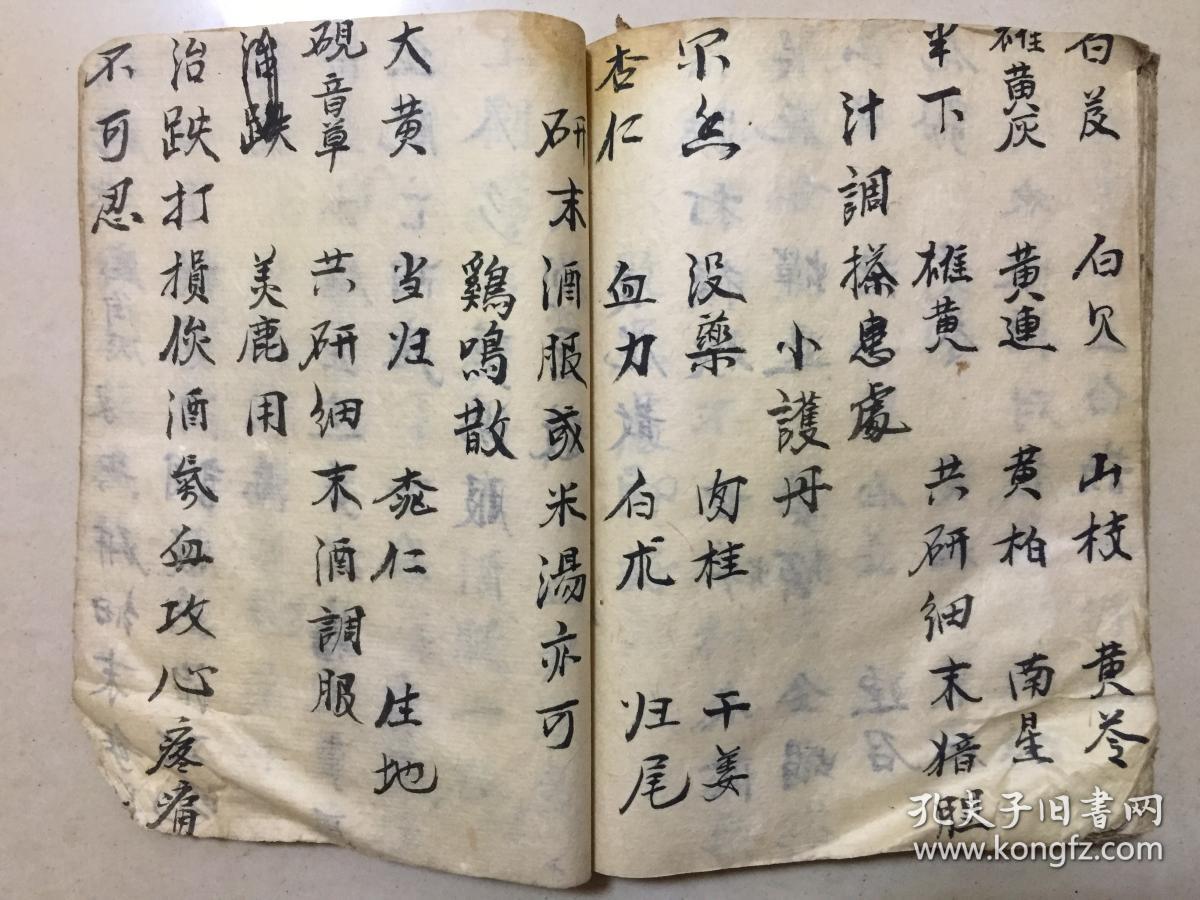 白芨 白欠 山枝 黄芩
碓黄灰 黄連 黄柏 南星
半下 椎黄 共研细末猪胆
汁調搽患處
小護丹
然 没藥 肉桂 干姜
杏仁 血力 白朮 归尾
研末酒服或米湯亦可
鷄鳴散
大黄 当归 桃仁 生地
硯音草 共研细末酒調服
跌 美鹿用
治跌打損傷酒氣血攻心疼痛
不可忍
孔夫子旧書网
www.kongfz.com